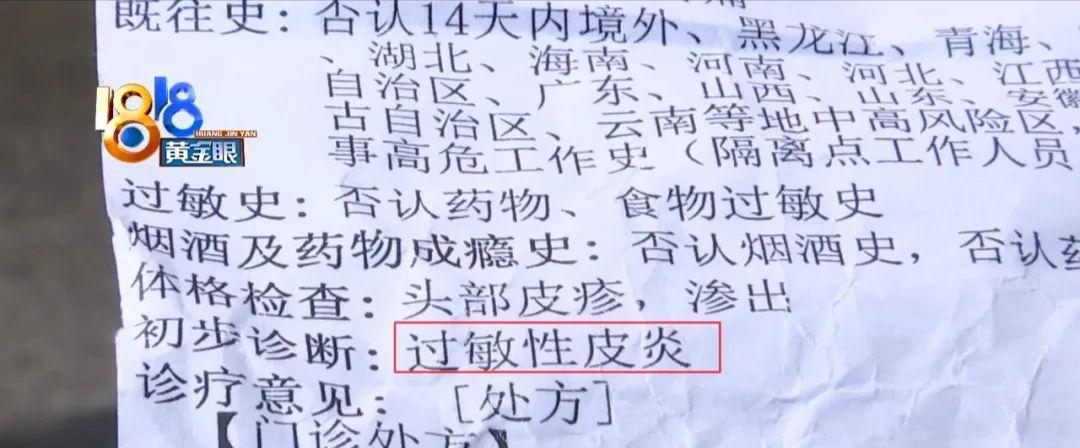 既往史：否认14天内境外、黑龙江、青海、
、湖北、海南、河南、河北、江西
自治区、广东、山西、山东、安徽
古自治区、云南等地中高风险区，
事高危工作史（隔离点工作人员
1818
HUANG JIN YAN
黄金眼
过敏史：否认药物、食物过敏史
烟酒及药物成瘾史：否认烟酒史，否认药
体格检查：头部皮疹，渗出
初步诊断：过敏性皮炎
诊疗意见：［处方］
【门诊处方】